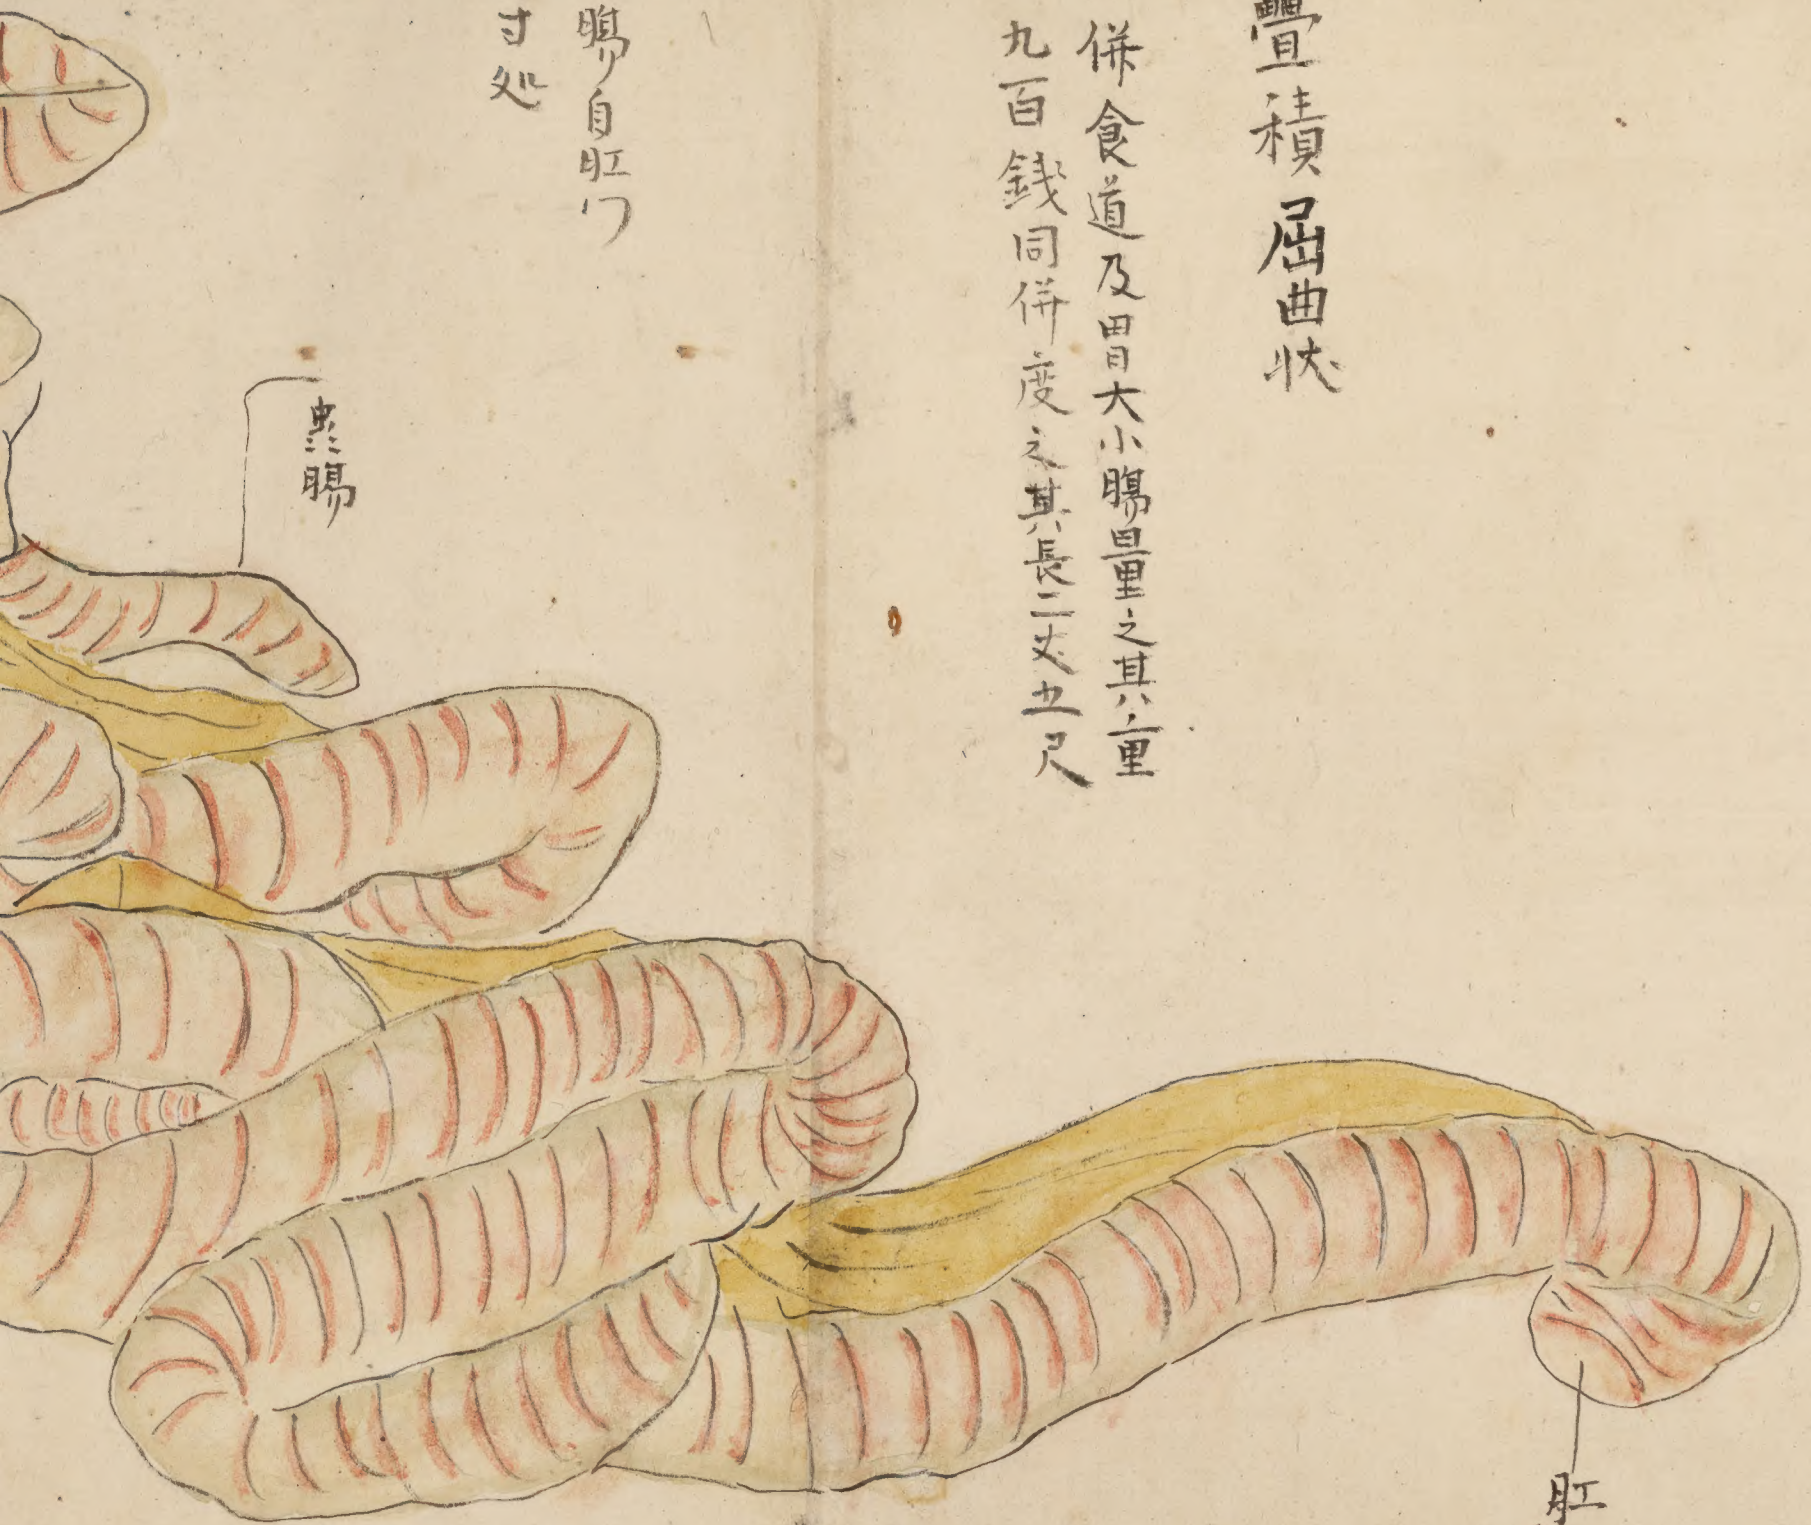 疊積屈曲状
併食道及胃大小腸量之其重
九百錢同併度之其長二丈五尺
腸自肛门
寸処
虫腸
肛